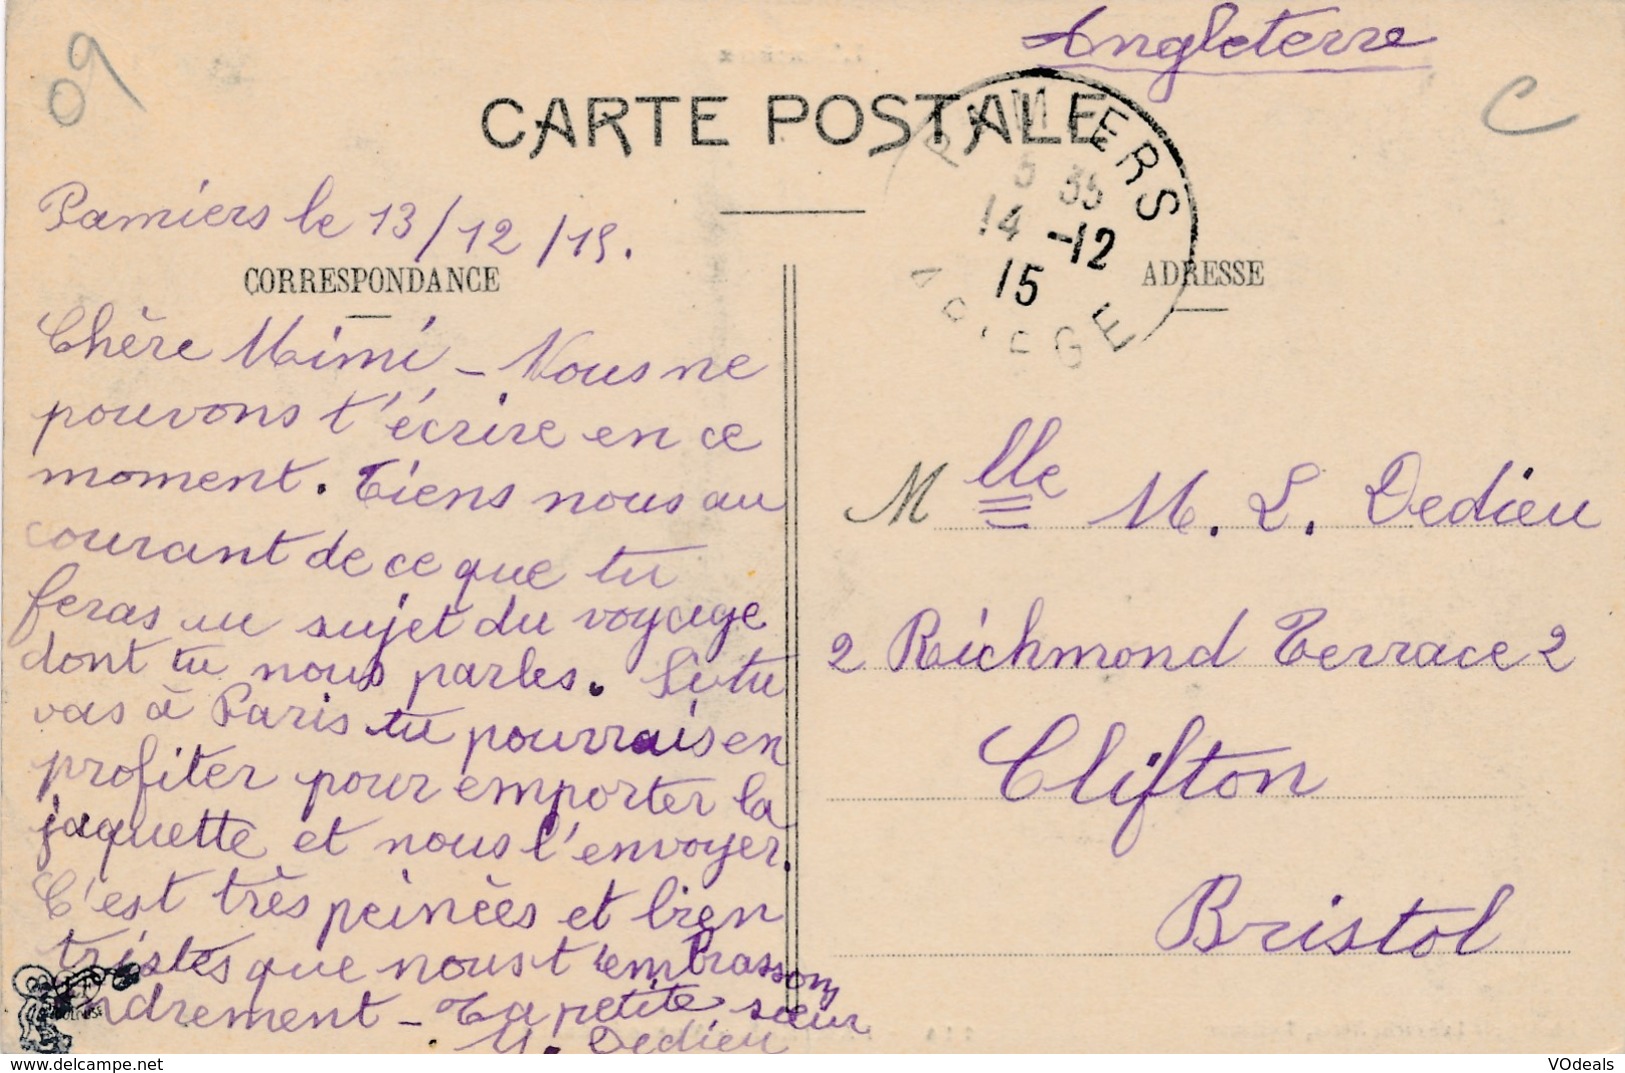 09
Angleterre
C
CARTE POSTALE
PAMIERS
5 35
14 -12
15
ARIEGE
Pamiers le 13/12/15.
CORRESPONDANCE
ADRESSE
Chère Mimi - Nous ne
pouvons t'écrire en ce
moment. Tiens nous au
courant de ce que tu
feras au sujet du voyage
dont tu nous parles. Si tu
vas à Paris tu pourrais en
profiter pour emporter la
jaquette et nous l'envoyer.
C'est très peinées et bien
tristes que nous t'embrassons
tendrement - Ta petite sœur
M. Dedieu
Mlle M. L. Dedieu
2 Richmond Terrace 2
Clifton
Bristol
VOdeals